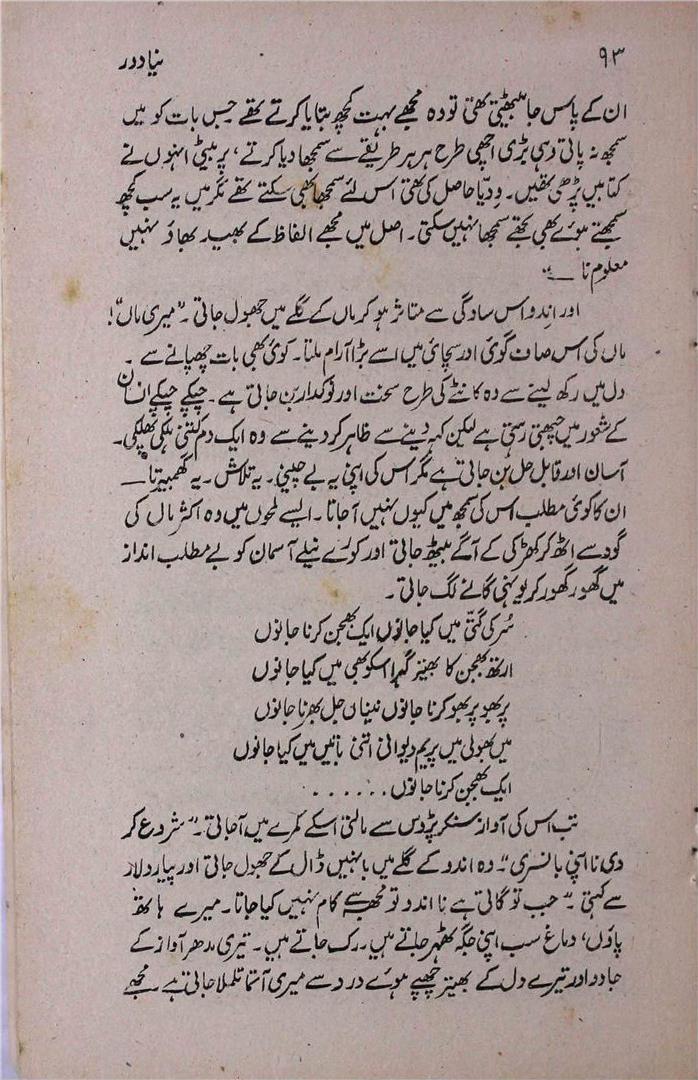 ۹۳ نیا دور
ان کے پاس جا بیٹھتی تھی تو وہ مجھے بہت کچھ بتایا کرتے تھے جس بات کو میں
سمجھ نہ پاتی وہی بڑی اچھی طرح ہر ہر طریقے سے سمجھا دیا کرتے، پر بیٹی انہوں نے
کتابیں پڑھی تھیں۔ ودیّا حاصل کی تھی اس لئے سمجھا بھی سکتے تھے مگر میں یہ سب کچھ
سمجھتے ہوئے بھی تجھے سمجھا نہیں سکتی۔ اصل میں مجھے الفاظ کے بھید بھاؤ نہیں
معلوم نا —"
اور اندو اس سادگی سے متاثر ہو کر ماں کے گلے میں جھول جاتی۔ "میری ماں"!
ماں کی اس صاف گوئی اور سچائی میں اسے بڑا آرام ملتا۔ کوئی بھی بات چھپانے سے۔
دل میں رکھ لینے سے وہ کانٹے کی طرح سخت اور نوکدار بن جاتی ہے۔ چپکے چپکے انسان
کے شعور میں چبھتی رہتی ہے لیکن کہہ دینے سے ظاہر کر دینے سے وہ ایک دم کتنی ہلکی پھلکی۔
آسان اور قابل حل بن جاتی ہے مگر اس کی اپنی یہ بے چینی۔ یہ تلاش۔ یہ گھمبیرتا —
ان کا کوئی مطلب اس کی سمجھ میں کیوں نہیں آ جاتا۔ ایسے لمحوں میں وہ اکثر ماں کی
گود سے اٹھ کر کھڑکی کے آگے بیٹھ جاتی اور کورے نیلے آسمان کو بے مطلب انداز
میں گھور گھور کر یونہی گانے لگ جاتی۔
سُر کی گتی میں کیا جانوں ایک بھجن کرنا جانوں
ارتھ بھجن کا بھیتر گہرا اسکو بھی میں کیا جانوں
پربھو پربھو کرنا جانوں نیناں جل بھرنا جانوں
میں بھولی میں پریم دیوانی اتنی باتیں میں کیا جانوں
ایک بھجن کرنا جانوں ......
تب اس کی آواز سنکر پڑوس سے مالتی اسکے کمرے میں آجاتی۔ "شروع کر
دی نا اپنی بانسری"۔ وہ اندو کے گلے میں بانہیں ڈال کے جھول جاتی اور پیار دلار
سے کہتی۔ "جب تو گاتی ہے نا اندو تو مجھ سے کام نہیں کیا جاتا۔ میرے ہاتھ
پاؤں، دماغ سب اپنی جگہ ٹھہر جاتے ہیں۔ رک جاتے ہیں۔ تیری مدھر آواز کے
جادو اور تیرے دل کے بھیتر چھپے ہوئے درد سے میری آتما تلملا جاتی ہے۔ مجھے